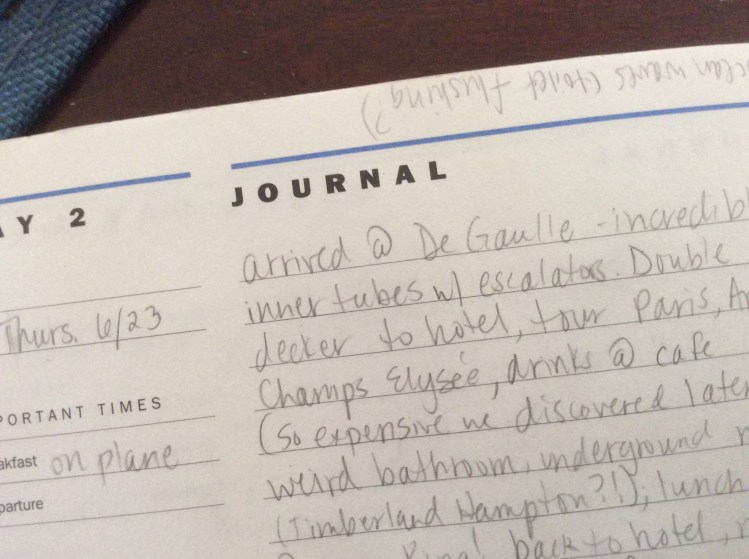 ocean waves (toilet flushing?)
AY 2
Thurs. 6/23
PORTANT TIMES
akfast on plane
parture
JOURNAL
arrived @ De Gaulle - incredibl
inner tubes w/ escalators. Double
decker to hotel, tour Paris, A
Champs Elysée, drinks @ cafe
(so expensive we discovered later
weird bathroom, underground
(Timberland Hampton?!); lunch
back to hotel,